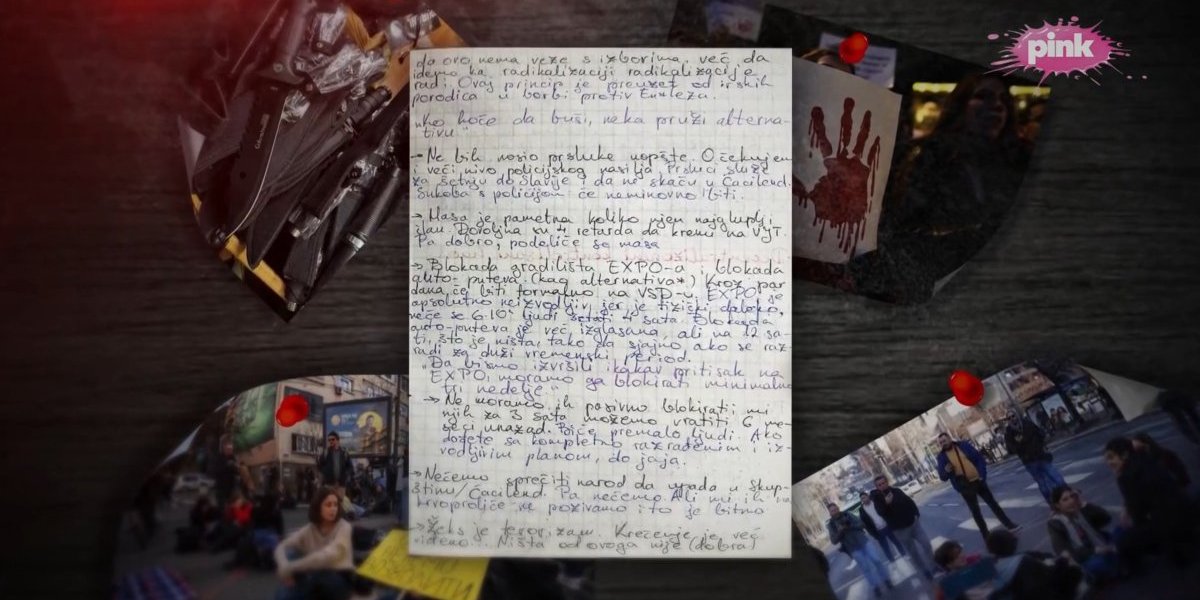 pink
da ovo nema veze s izborima, već da
idemo ka radikalizaciji radikalizacije
radi. Ovaj princip je preuzet od irskih
porodica u borbi protiv Engleza.
"Ko hoće da buši, neka pruži alterna-
tivu"
→ Ne bih nosio prsluke uopšte. Očekujem
i veći nivo policijskog nasilja. Prsluci služe
za šetnju do Slavije i da ne skaču u Ćacilend.
Sukoba s policijom će neminovno biti.
→ Masa je pametna koliko njen najgluplji
član. Dovoljna su 4 retarda da krenu na
Pa dobro, podeliće se masa
→ Blokada gradilišta EXPO-a i blokada
auto-puteva (kao alternativa*) kroz par
dana će biti formalno na VSD-u. EXPO je
apsolutno neizvodljiv jer je fizički daleko,
neće se ljudi šetati 4 sata. Blokada
auto-puteva je već izglasana, ali na 12 sa-
ti, što je ništa, tako da sjajno ako se raz-
radi za duži vremenski period.
"Da bismo izvršili ikakav pritisak na
EXPO, moramo ga blokirati minimalno
tri nedelje"
→ Ne moramo ih pasivno blokirati; mi
njih za 3 sata možemo vratiti 6 me-
seci unazad. Biće premalo ljudi. Ako
dođete sa kompletno razrađenim i iz-
vodljivim planom, do jaja.
→ Nećemo sprečiti narod da upada u Skup-
štinu/Ćacilend. Pa nećemo. Ali mi ih na
krvoproliće ne pozivamo i to je bitno
→ Žeks je terorizam. Krečenje je već
viđeno. Ništa od ovoga nije (dobra)